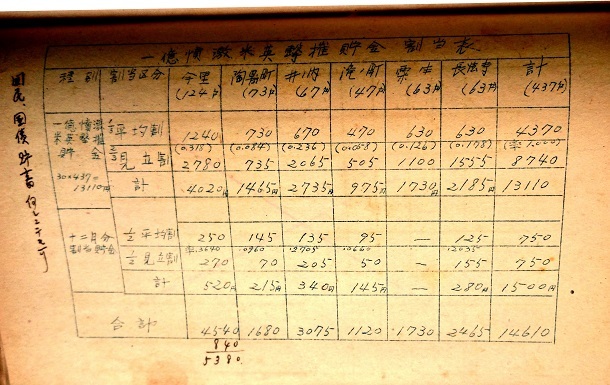 一億憤激米英撃摧貯金 割当表
種別 割当区分 今里 井ノ内 滝ノ町 粟生 長法寺 計
(124戸) (73戸) (67戸) (47戸) (63戸) (63戸) (437戸)
一億憤激米英撃摧貯金 1/3平均割 1240 730 670 470 630 630 4370
(0.318) (0.084) (0.236) (0.058) (0.126) (0.178) (率1.000)
2/3見立割 2780 735 2065 505 1100 1555 8740
30×437=13110円 計 4020円 1465円 2735円 975円 1730円 2185円 13110
十二月分割当貯金 1/2平均割 250 145 135 95 — 125 750
率.3640 .0960 .2705 .0660 .2035
1/2見立割 270 70 205 50 — 155 750
計 520円 215円 340円 145円 — 280円 1500円
合計 4540 1680 3075 1120 1730 2465 14610
840
5380
国民、国債貯蓄